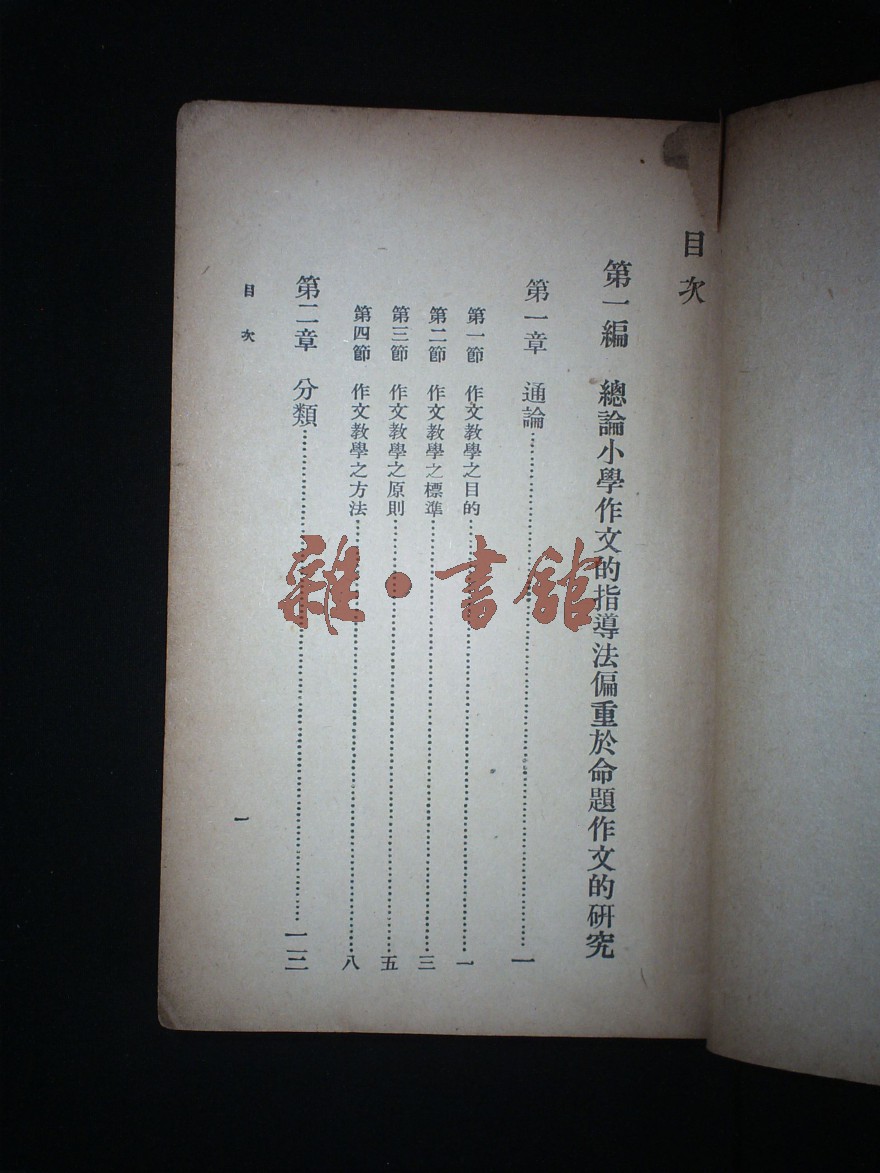 目次
第一編 總論小學作文的指導法偏重於命題作文的研究
第一章 通論……一
第一節 作文教學之目的……一
第二節 作文教學之標準……三
第三節 作文教學之原則……五
第四節 作文教學之方法……八
第二章 分類……一三
目次
一
雜·書館